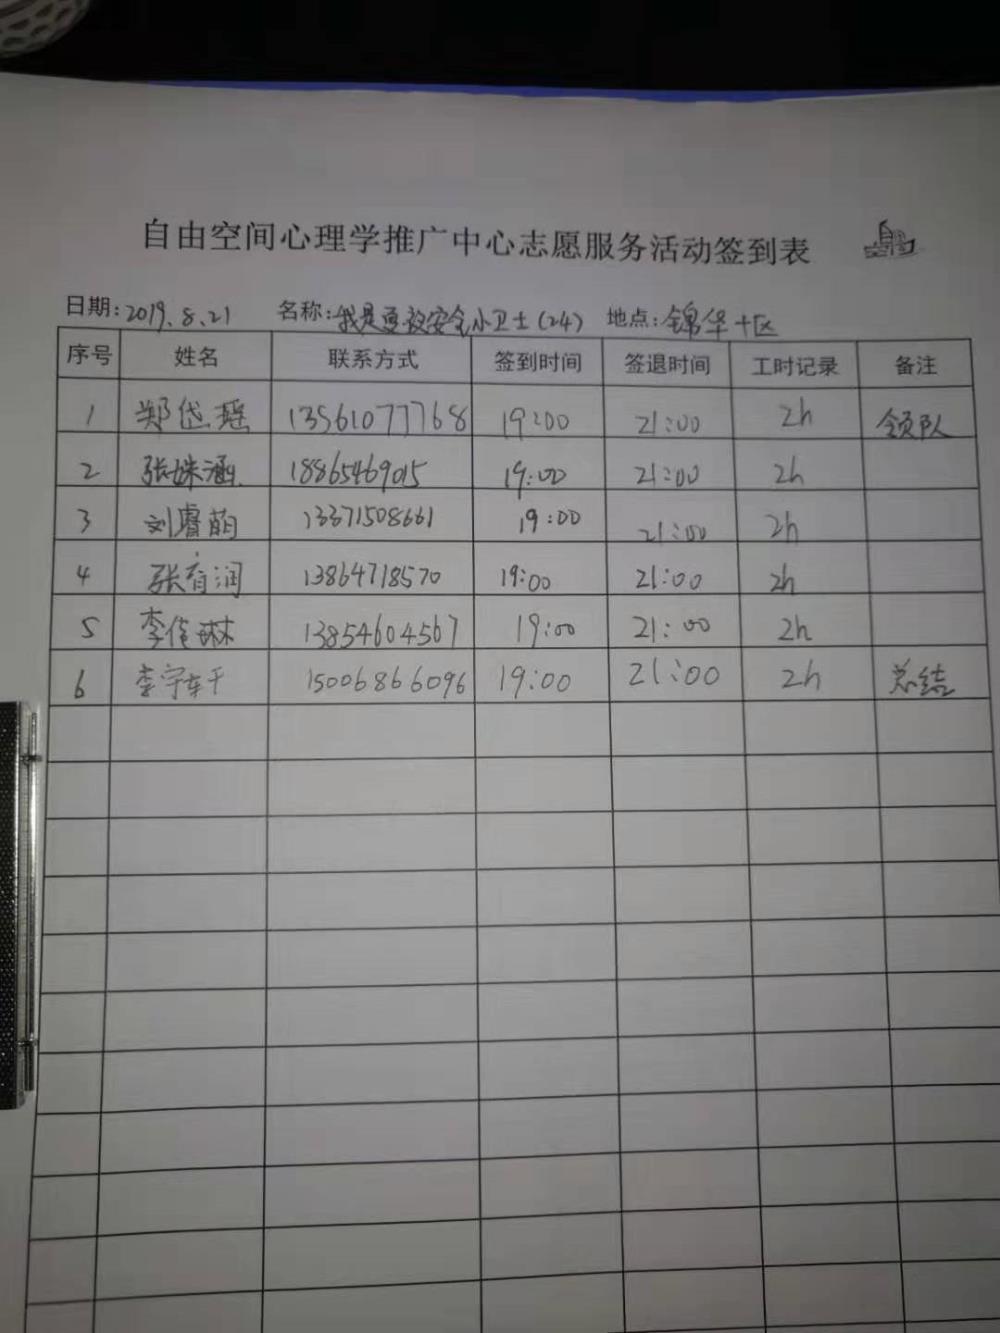 自由空间心理学推广中心志愿服务活动签到表
日期:2019.8.21 名称:我是勇敢安全小卫士(24) 地点:锦华十区
序号 姓名 联系方式 签到时间 签退时间 工时记录 备注
1 郑岱瑶 13561077768 19:00 21:00 2h 领队
2 张姝涵 18865469015 19:00 21:00 2h
3 刘睿萌 13371508661 19:00 21:00 2h
4 张育润 13864718570 19:00 21:00 2h
5 李佳琳 13854604567 19:00 21:00 2h
6 李宇轩 15006866096 19:00 21:00 2h 总结